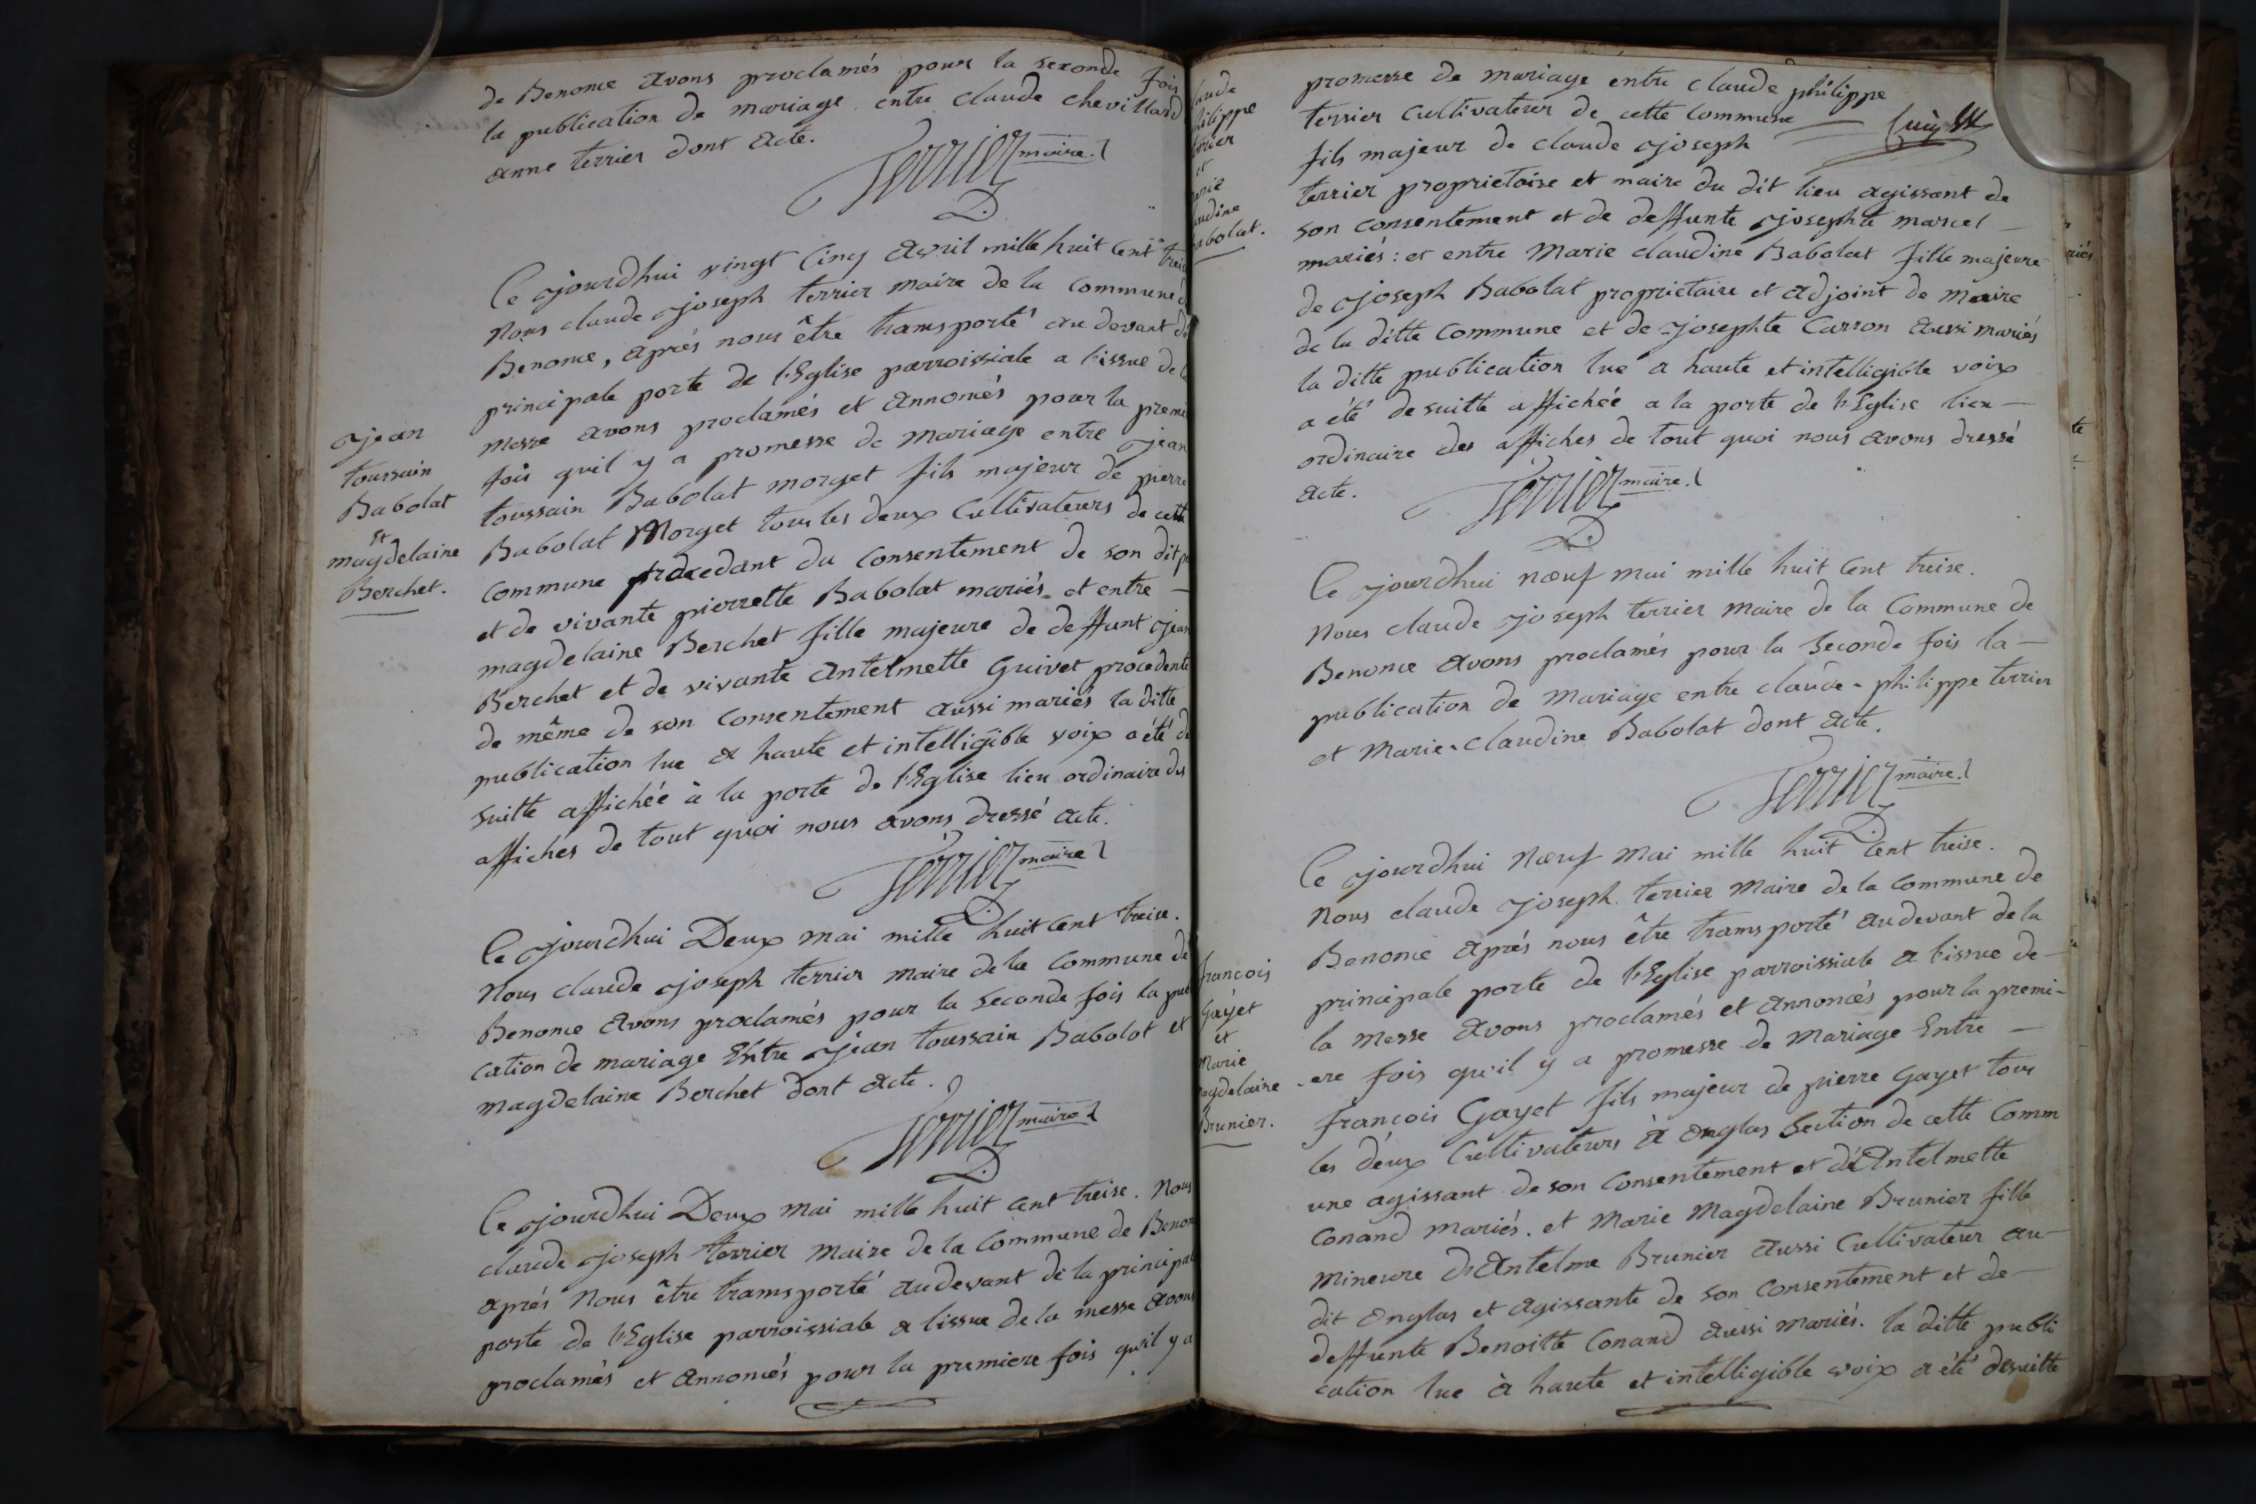 de Benonce avons proclamés pour la seconde fois
la publication de mariage entre claude chevillard
anne terrier dont acte.
Terrier maire.
Ce jourdhui vingt cinq avril mille huit cent treise
Nous claude joseph terrier maire de la commune de
Benonce, aprés nous être transporté au devant de
principale porte de l'Eglise parroissiale a l'issue de la
messe avons proclamés et annoncés pour la premie
fois quil y a promesse de mariage entre jean
toussain Babolat morget fils majeur de pierre
Babolat Morget tous les deux Cultivateurs de cette
commune procedant du consentement de son dit pe
et de vivante pierrette Babolat mariés et entre —
magdelaine Berchet fille majeure de deffunt jean
Berchet et de vivante antelmette Guivet procedente
de même de son consentement aussi mariés la ditte
publication lue a haute et intelligible voix a été de
suitte affichée à la porte de l'Eglise lieu ordinaire des
affiches de tout quoi nous avons dressé acte.
Terrier maire
jean
toussain
Babolat
et
magdelaine
Berchet.
Ce jourdhui Deux mai mille huit cent treise.
Nous claude joseph terrier maire de la commune de
Benonce avons proclamés pour la seconde fois la publ
cation de mariage Entre jean toussain Babolat et
magdelaine Berchet dont acte.
Terrier maire
Ce jourdhui Deux mai mille huit cent treise. Nous
claude joseph terrier maire de la commune de Benon
aprés Nous être transporté audevant de la principale
porte de l'Eglise parroissiale a lissue de la messe avons
proclamés et annoncés pour la premiere fois qu'il y a
laude
hilippe
terrier
et
marie
laudine
abolat.
promesse de mariage entre claude philippe
terrier cultivateur de cette commune
fils majeur de claude joseph
terrier proprietoise et maire du dit lieu agissant de
son consentement et de deffunte josephte marcel —
mariés: et entre Marie claudine Babolat fille majeure
de joseph Babolat proprietaire et adjoint de maire
de la ditte commune et de josephte Carron aussi mariés
la ditte publication lue a haute et intelligible voix
a été de suitte affichée a la porte de l'Eglise lieu —
ordinaire des affiches de tout quoi nous avons dressé
acte.
Terrier maire.
Ce jourdhui nœuf mai mille huit cent treise.
Nous claude joseph terrier maire de la Commune de
Benonce avons proclamés pour la Seconde fois la —
publication de Mariage entre claude - philippe terrier
et Marie-claudine Babolat dont acte.
Terrier maire.
Ce jourdhui Nœuf Mai mille huit cent treise.
Nous claude joseph terrier Maire de la commune de
Benonce aprés nous être transporté audevant de la
principale porte de l'Eglise parroissiale a l'issue de —
la Messe avons proclamés et annoncés pour la premi-
-ere fois qu'il y a promesse de mariage Entre —
françois Gayet fils majeur de pierre Gayet tous
les deux Cultivateurs à onglas Section de cette Comm
une agissant de son consentement et d'Antelmette
Conand mariés. et Marie Magdelaine Brunier fille
mineure d'Antelme Brunier aussi Cultivateur au —
dit onglas et agissante de son consentement et de —
deffunte Benoitte Conand aussi mariés. la ditte publi
cation lue à haute et intelligible voix a été desuitte
francois
Gayet
et
Marie
agdelaine
Brunier.